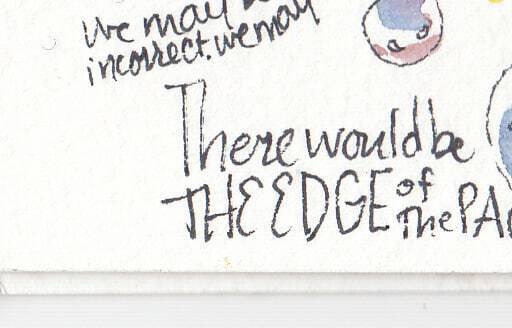 we may
incorrect. we may
There would be
THE EDGE of
The PA